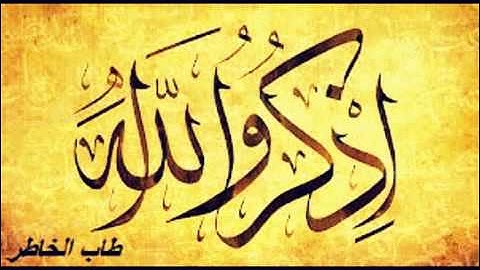 اذْكُرُوا اللَّهَ
طاب الخاطر